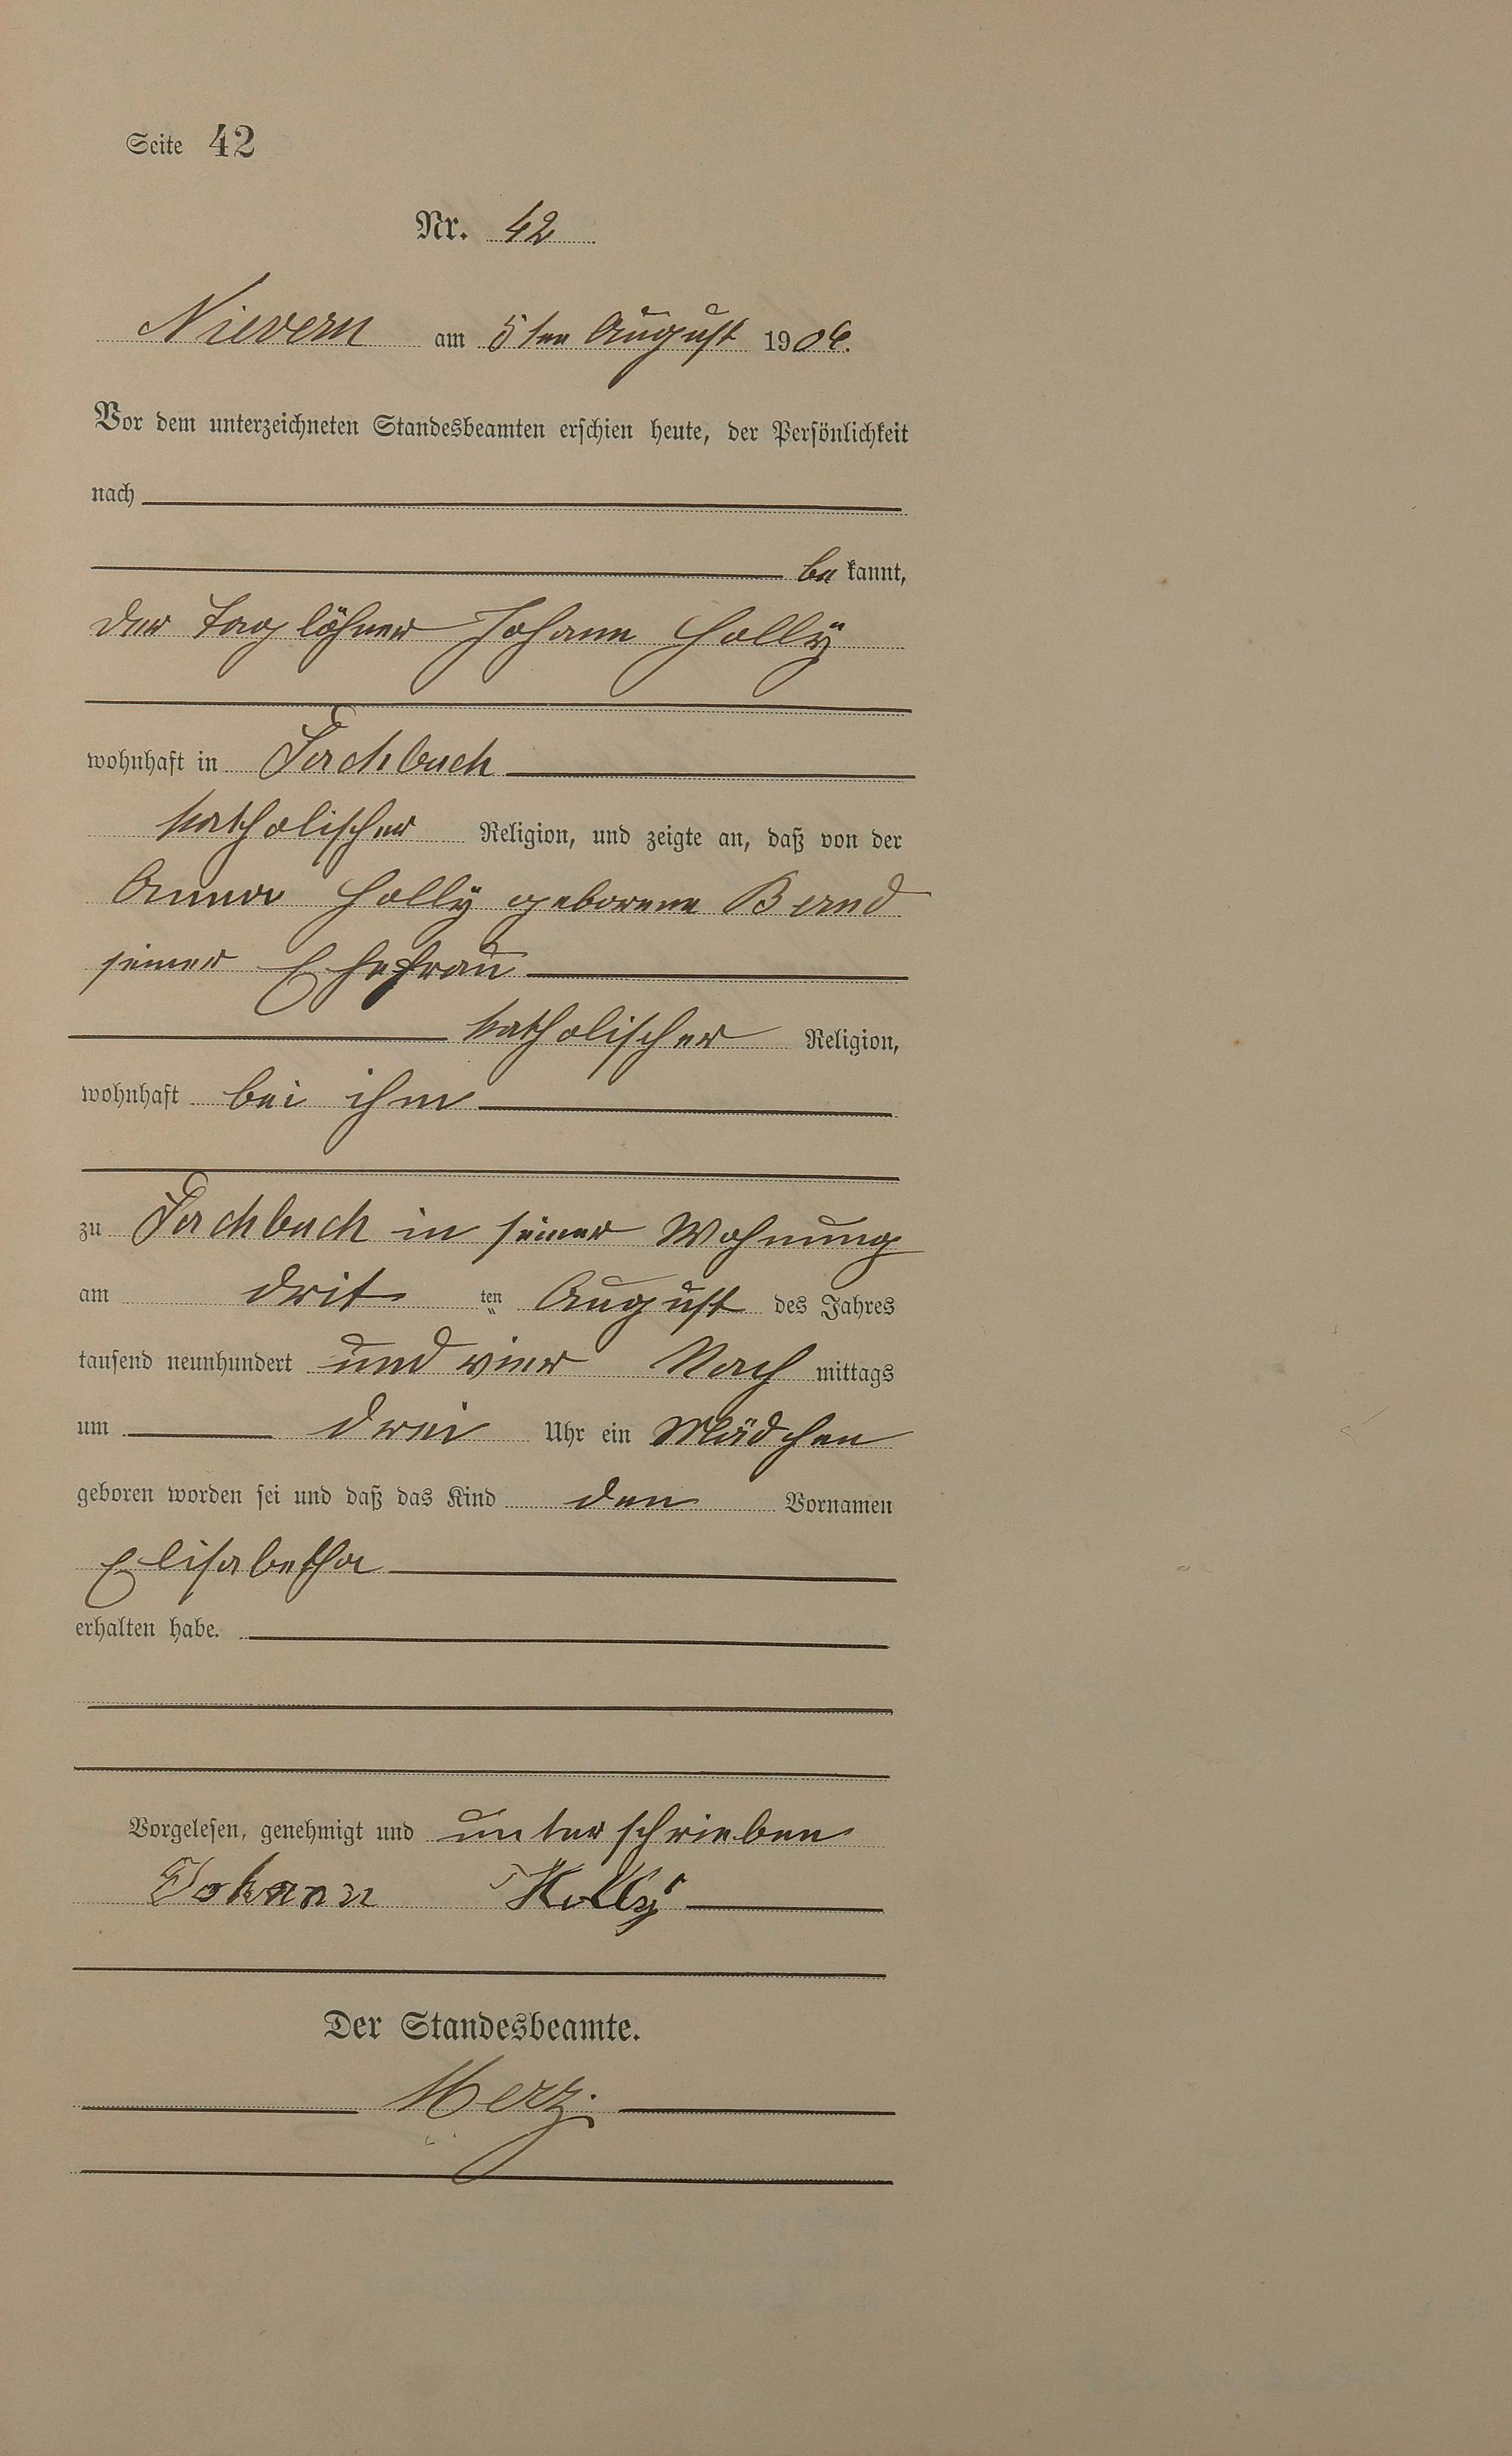 Seite 42
Nr. 42
Nievern am 5ten August 1904.
Vor dem unterzeichneten Standesbeamten erschien heute, der Persönlichkeit
nach
be kannt,
der Taglöhner Johann Holly
wohnhaft in Fachbach
katholischer Religion, und zeigte an, daß von der
Anna Holly geborene Bernd
seiner Ehefrau
katholischer Religion,
wohnhaft bei ihm
zu Fachbach in seiner Wohnung
am drit ten August des Jahres
tausend neunhundert und vier Nach mittags
um drei Uhr ein Mädchen
geboren worden sei und daß das Kind den Vornamen
Elisabetha
erhalten habe.
Vorgelesen, genehmigt und unterschrieben
Johann Holly
Der Standesbeamte.
Merz.